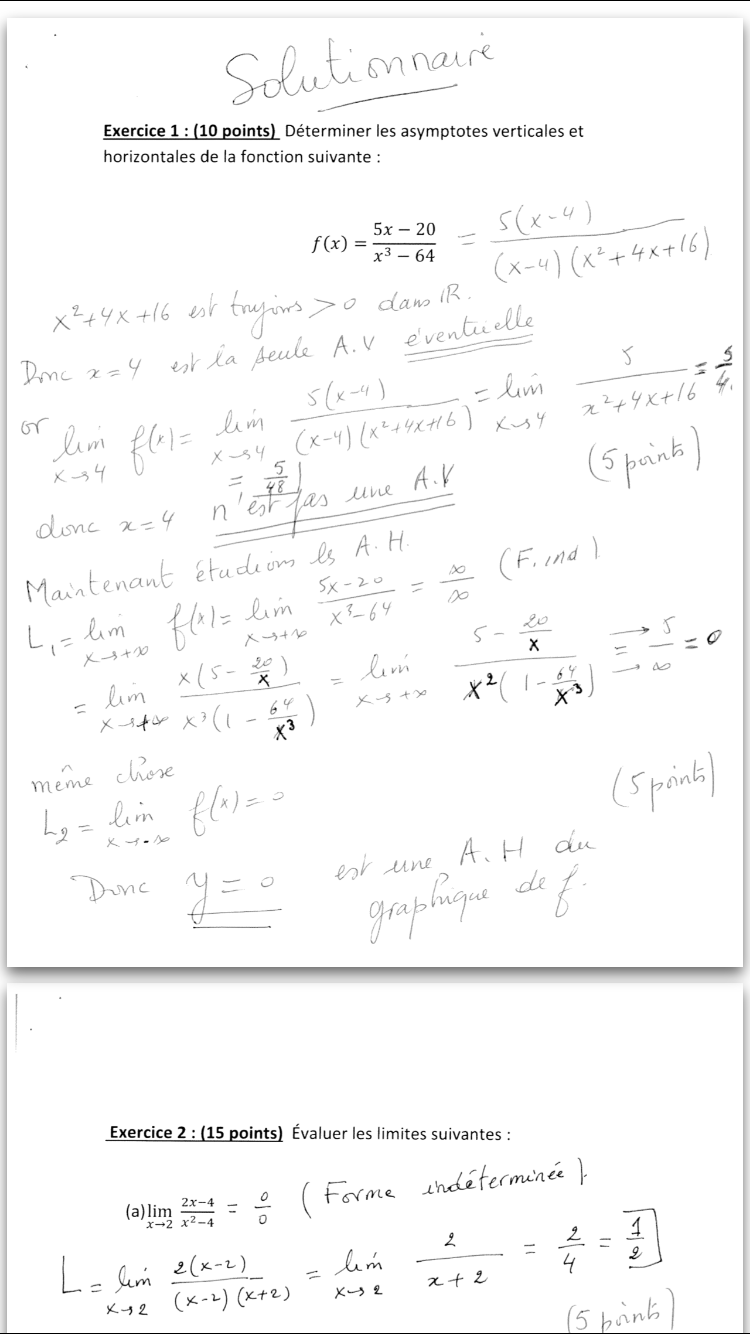 Solutionnaire
Exercice 1 : (10 points) Déterminer les asymptotes verticales et
horizontales de la fonction suivante :
f(x) = (5x − 20)/(x³ − 64) = 5(x-4)/((x-4)(x²+4x+16))
x²+4x+16 est toujours > 0 dans IR.
Donc x=4 est la seule A.V éventuelle
or lim x→4 f(x) = lim x→4 5(x-4)/((x-4)(x²+4x+16)) = lim x→4 5/(x²+4x+16) = 5/4.
= 5/48
(5 points)
donc x=4 n'est pas une A.V
Maintenant étudions les A.H.
L₁ = lim x→+∞ f(x) = lim x→+∞ (5x-20)/(x³-64) = ∞/∞ (F. ind).
= lim x→+∞ x(5 - 20/x)/(x³(1 - 64/x³)) = lim x→+∞ (5 - 20/x)/(x²(1 - 64/x³)) →=→ 5/∞ = 0
même chose
L₂ = lim x→-∞ f(x) = 0
(5 points)
Donc y = 0 est une A.H du
graphique de f.
Exercice 2 : (15 points) Évaluer les limites suivantes :
(a) lim x→2 (2x−4)/(x²−4) = 0/0 (Forme indéterminée).
L = lim x→2 2(x-2)/((x-2)(x+2)) = lim x→2 2/(x+2) = 2/4 = 1/2
(5 points)